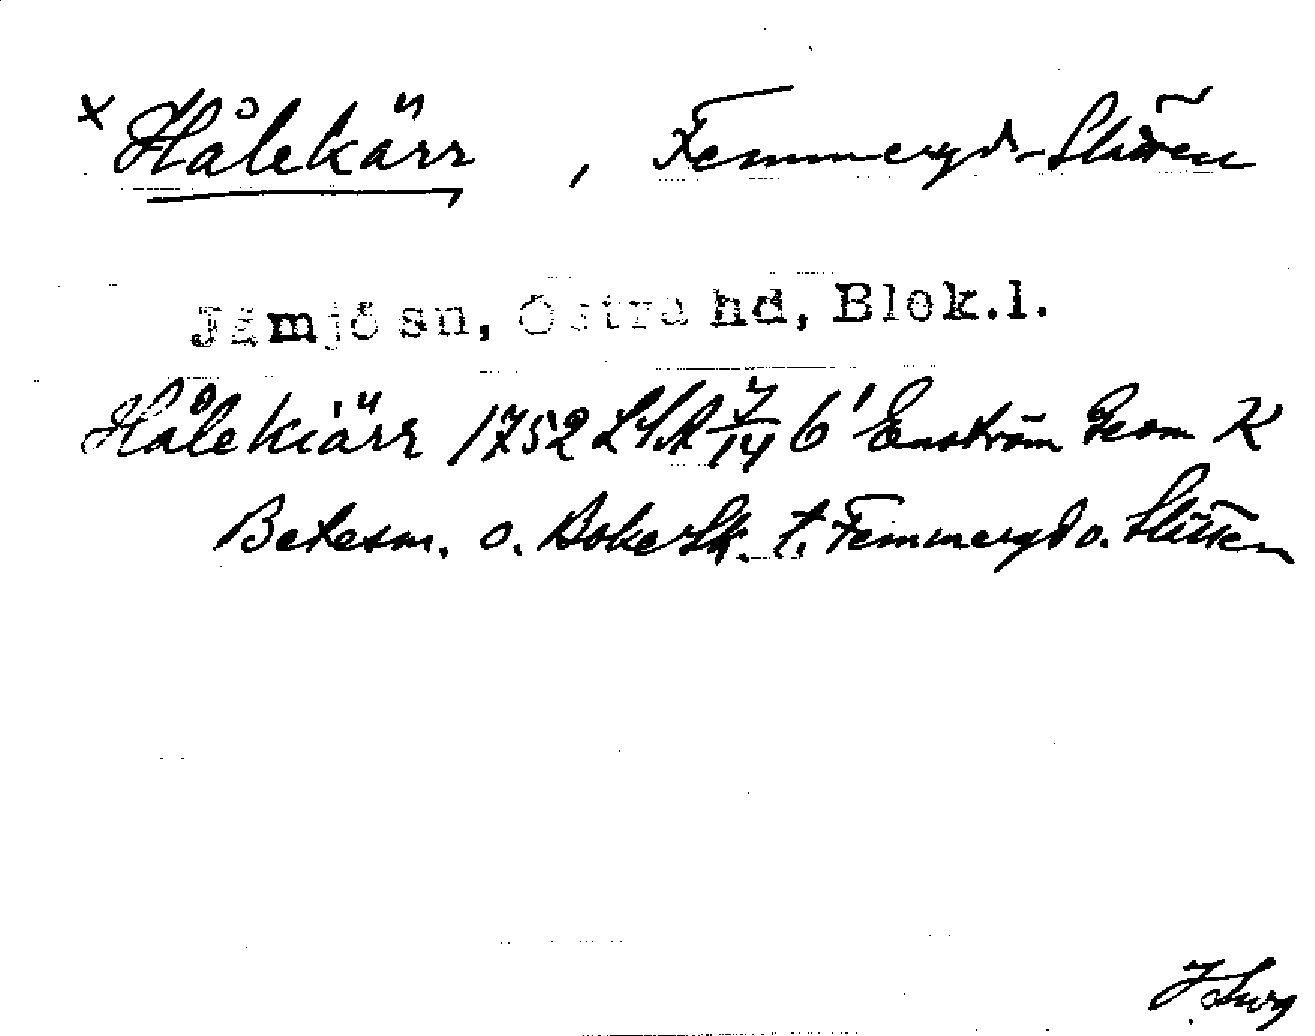 x Hålekärr , Femmeryd-Slätten
Jämjö sn, Östra hd, Blek.l.
Hålekiärr 1752 LSA 7/14 6' Enström Geom K
Betesm. o. Bokesk. t. Femmeryd o. Slätten